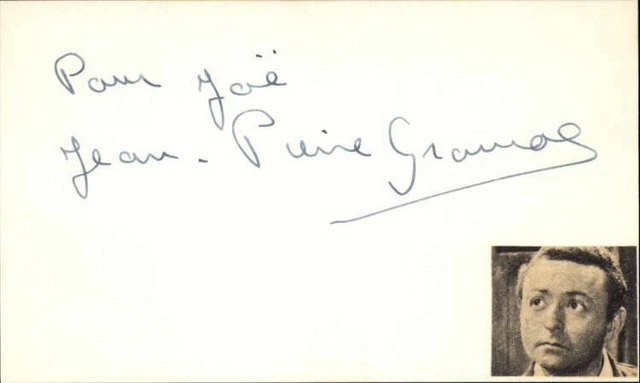 Pour Joë
Jean-Pierre Granval